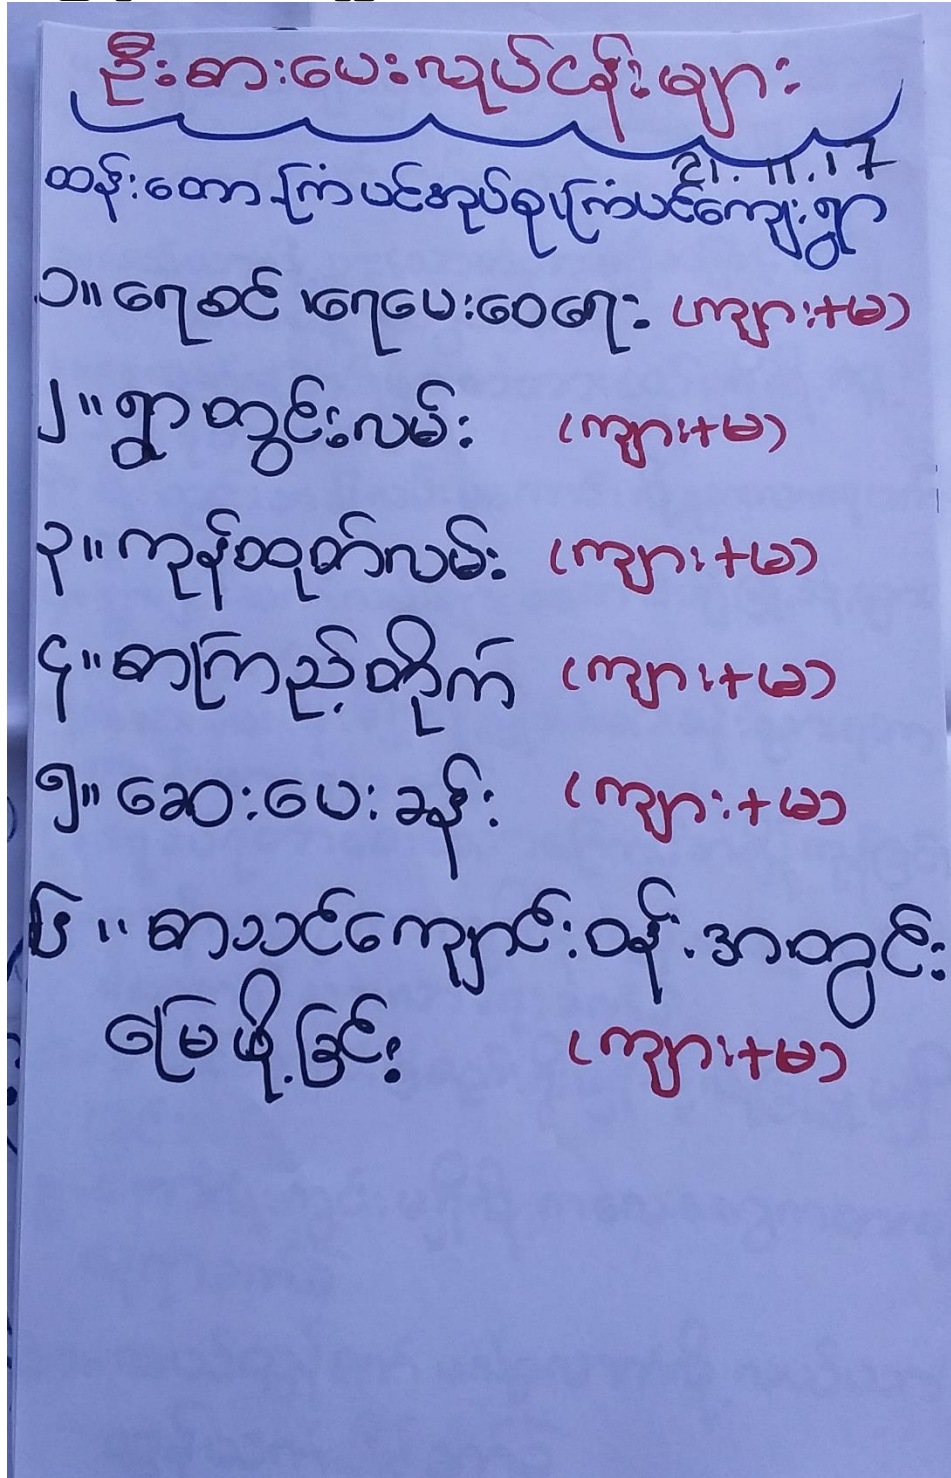 ဦးစားပေးလုပ်ငန်းများ
21.11.17
ထန်းတော ကြံပင်အုပ်စု၊ ကြံပင်ကျေးရွာ
၁။ ရေစင် ၊ရေပေးဝေရေး (ကျား+မ)
၂။ ရွာတွင်းလမ်း (ကျား+မ)
၃။ ကုန်ထုတ်လမ်း (ကျား+မ)
၄။ စာကြည့်တိုက် (ကျား+မ)
၅။ ဆေးပေးခန်း (ကျား+မ)
၆။ စာသင်ကျောင်းဝန်းအတွင်း
မြေဖို့ခြင်း (ကျား+မ)